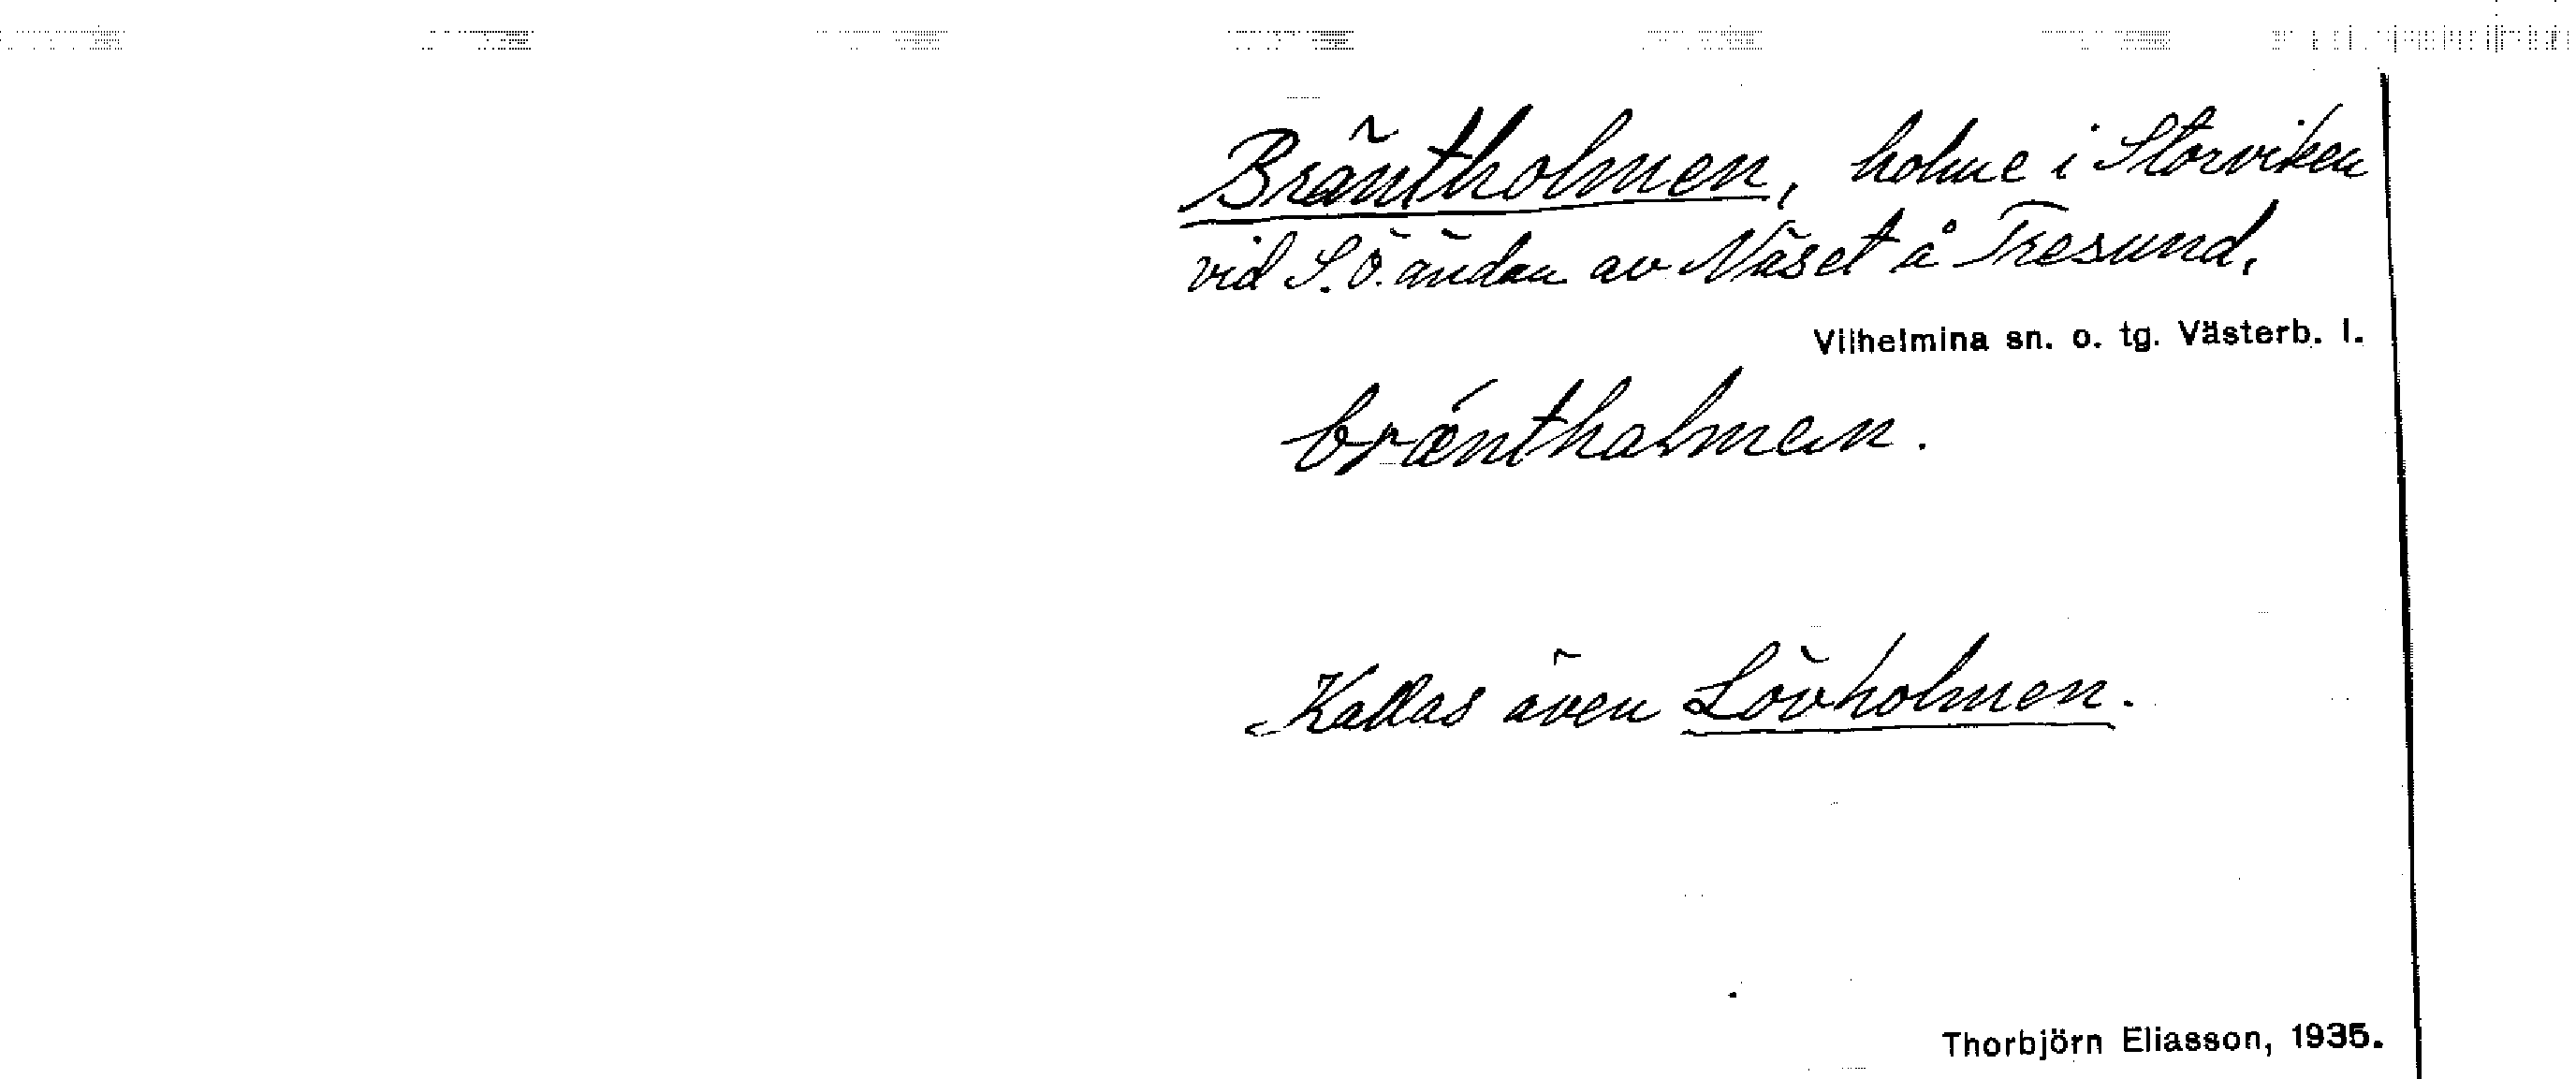 Bräntholmen, holme i Storviken
vid S.Ö. ändan av Näset å Tresund,
Vilhelmina sn. o. tg. Västerb. l.
bræ´nthaɬmen.
Kallas även Lövholmen.
Thorbjörn Eliasson, 1935.